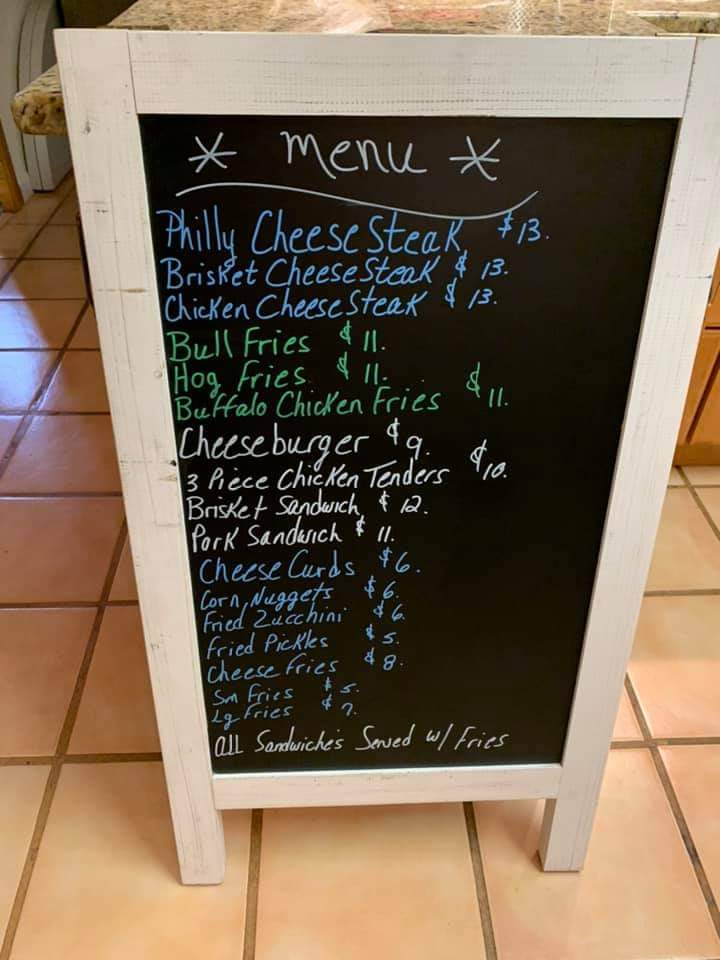 * Menu *
Philly Cheese Steak $13.
Brisket Cheese Steak $13.
Chicken Cheese Steak $13.
Bull Fries $11.
Hog Fries $11.
Buffalo Chicken Fries $11.
Cheeseburger $9.
3 Piece Chicken Tenders $10.
Brisket Sandwich $12.
Pork Sandwich $11.
Cheese Curds $6.
Corn Nuggets $6.
Fried Zucchini $6.
Fried Pickles $5.
Cheese Fries $8.
Sm Fries $5.
Lg Fries $7.
All Sandwiche's Served w/ Fries